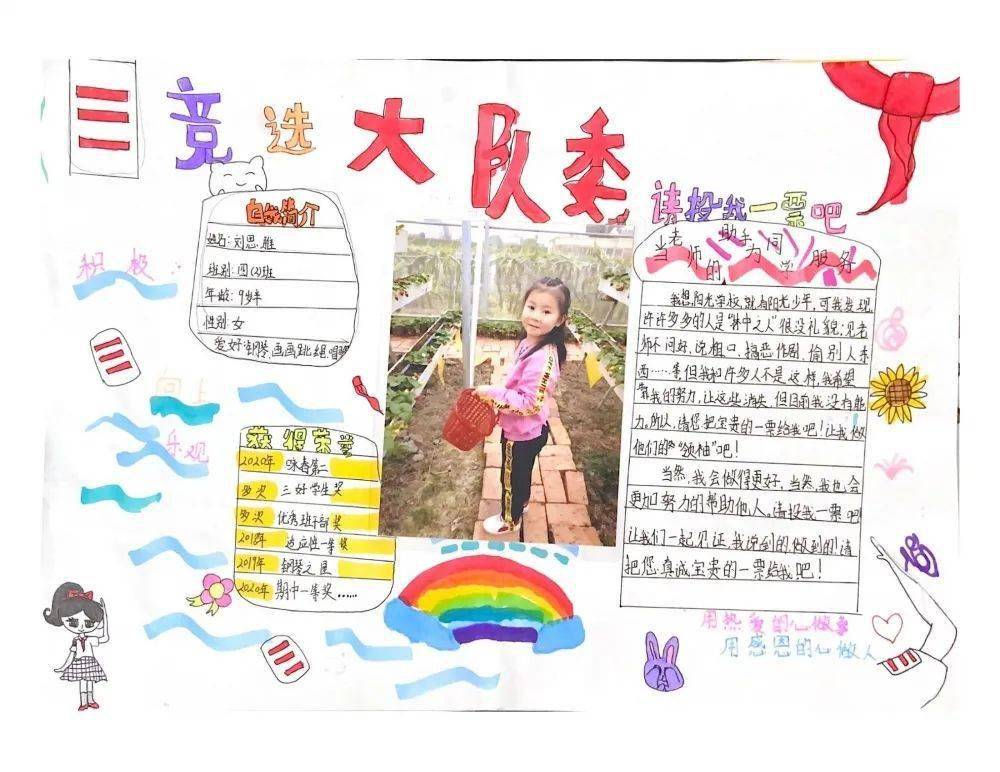 竞选大队委
请投我一票吧
自我简介
姓名:刘思雅
班别:四(2)班
年龄:9岁半
性别:女
爱好:钢琴、画画、跳绳、唱歌
积极
向上
乐观
获得荣誉
2020年 咏春第二
多次 三好学生奖
多次 优秀班干部奖
2018年 适应性一等奖
2019年 钢琴之星
2020年 期中一等奖……
当老师的助手
为同学服务
我想,阳光学校就有阳光少年,可我发现
许许多多的人是“林中之人”很没礼貌;见老
师不问好,说粗口,搞恶作剧,偷别人东
西……等,但我和许多人不是这样,我希望
靠我的努力,让这些消失,但目前我没有能
力。所以,请您把宝贵的一票给我吧!让我做
他们的“领袖”吧!
当然,我会做得更好,当然,我也会
更加努力的帮助他人。请投我一票吧
让我们一起见证,我说到的做到的!请
把您真诚宝贵的一票给我吧!
用热爱的心做事
用感恩的心做人